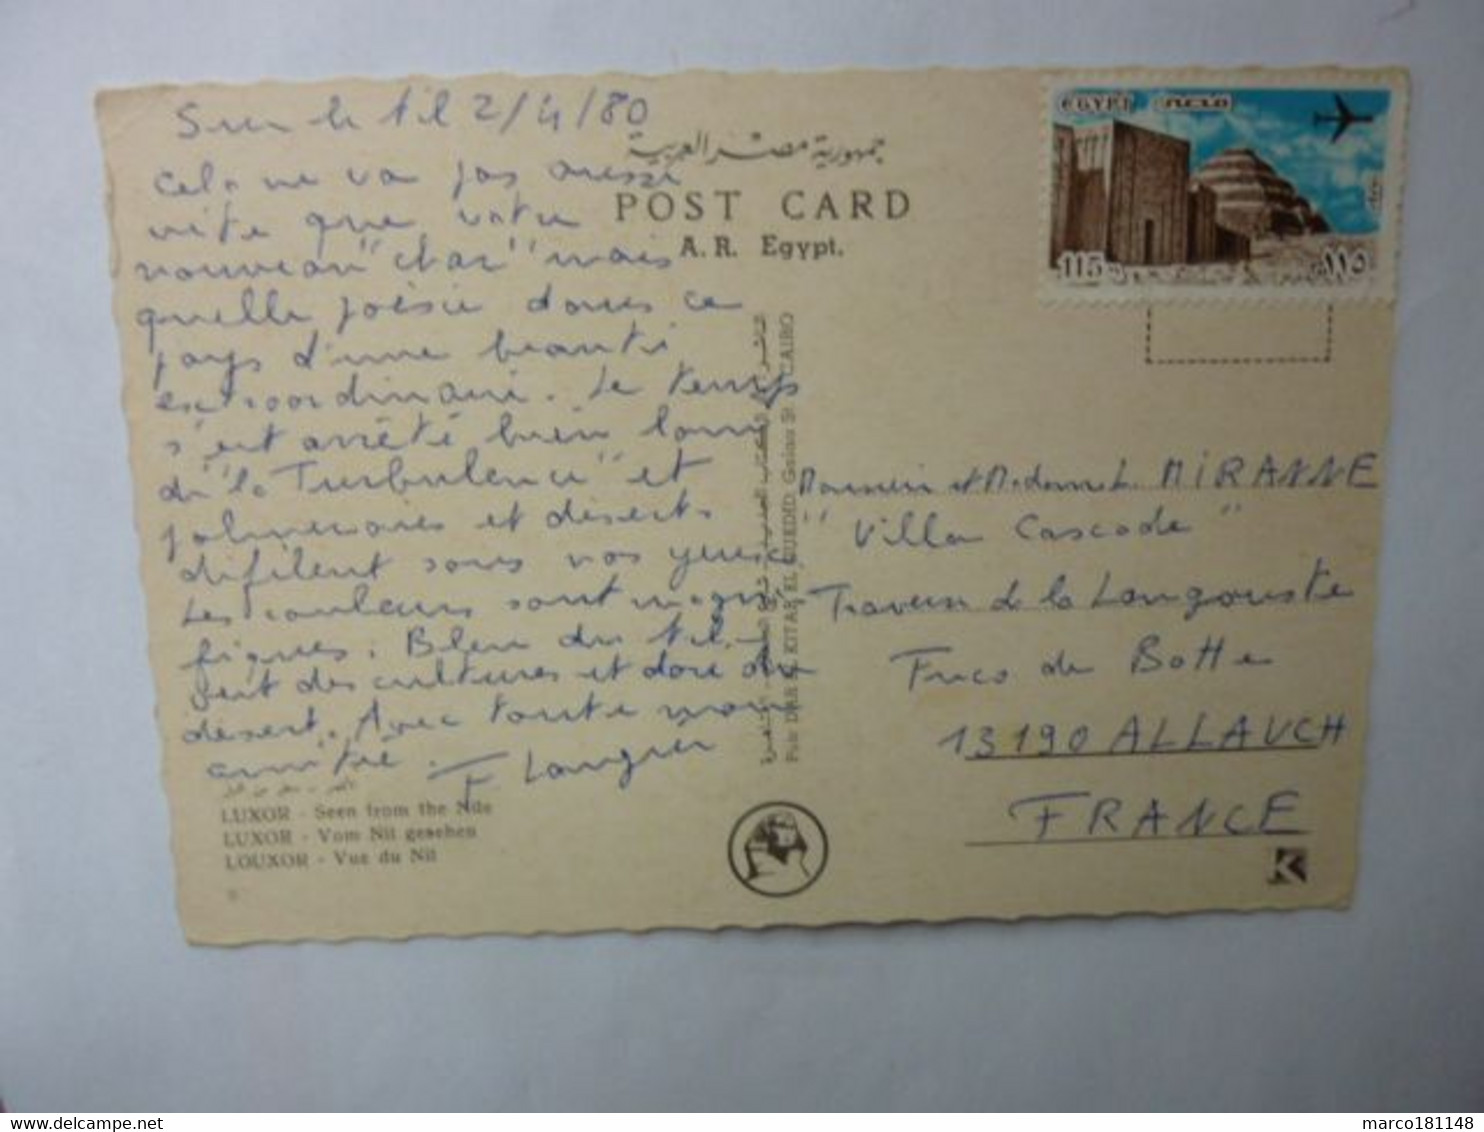 Sur le Nil 2/4/80
Cela ne va pas aussi
vite que votre
nouveau "char" mais
quelle poésie dans ce
pays d'une beauté
extraordinaire. Le temps
s'est arrêté bien loin
de "la Turbulence" et
palmeraies et déserts
défilent sous nos yeux
Les couleurs sont magni
fiques. Bleu du Nil -
vert des cultures et doré du
désert. Avec toute mon
amitié.
LUXOR - Seen from the Nile
LUXOR - Vom Nil gesehen
LOUXOR - Vue du Nil
جمهورية مصر العربية
POST CARD
A. R. Egypt.
EGYPT مصر
115 ١١٥
Monsieur et Madame L. MIRANNE
"Villa Cascade"
Traverse de la Langouste
de Botte
13190 ALLAUCH
FRANCE
K
marco181148